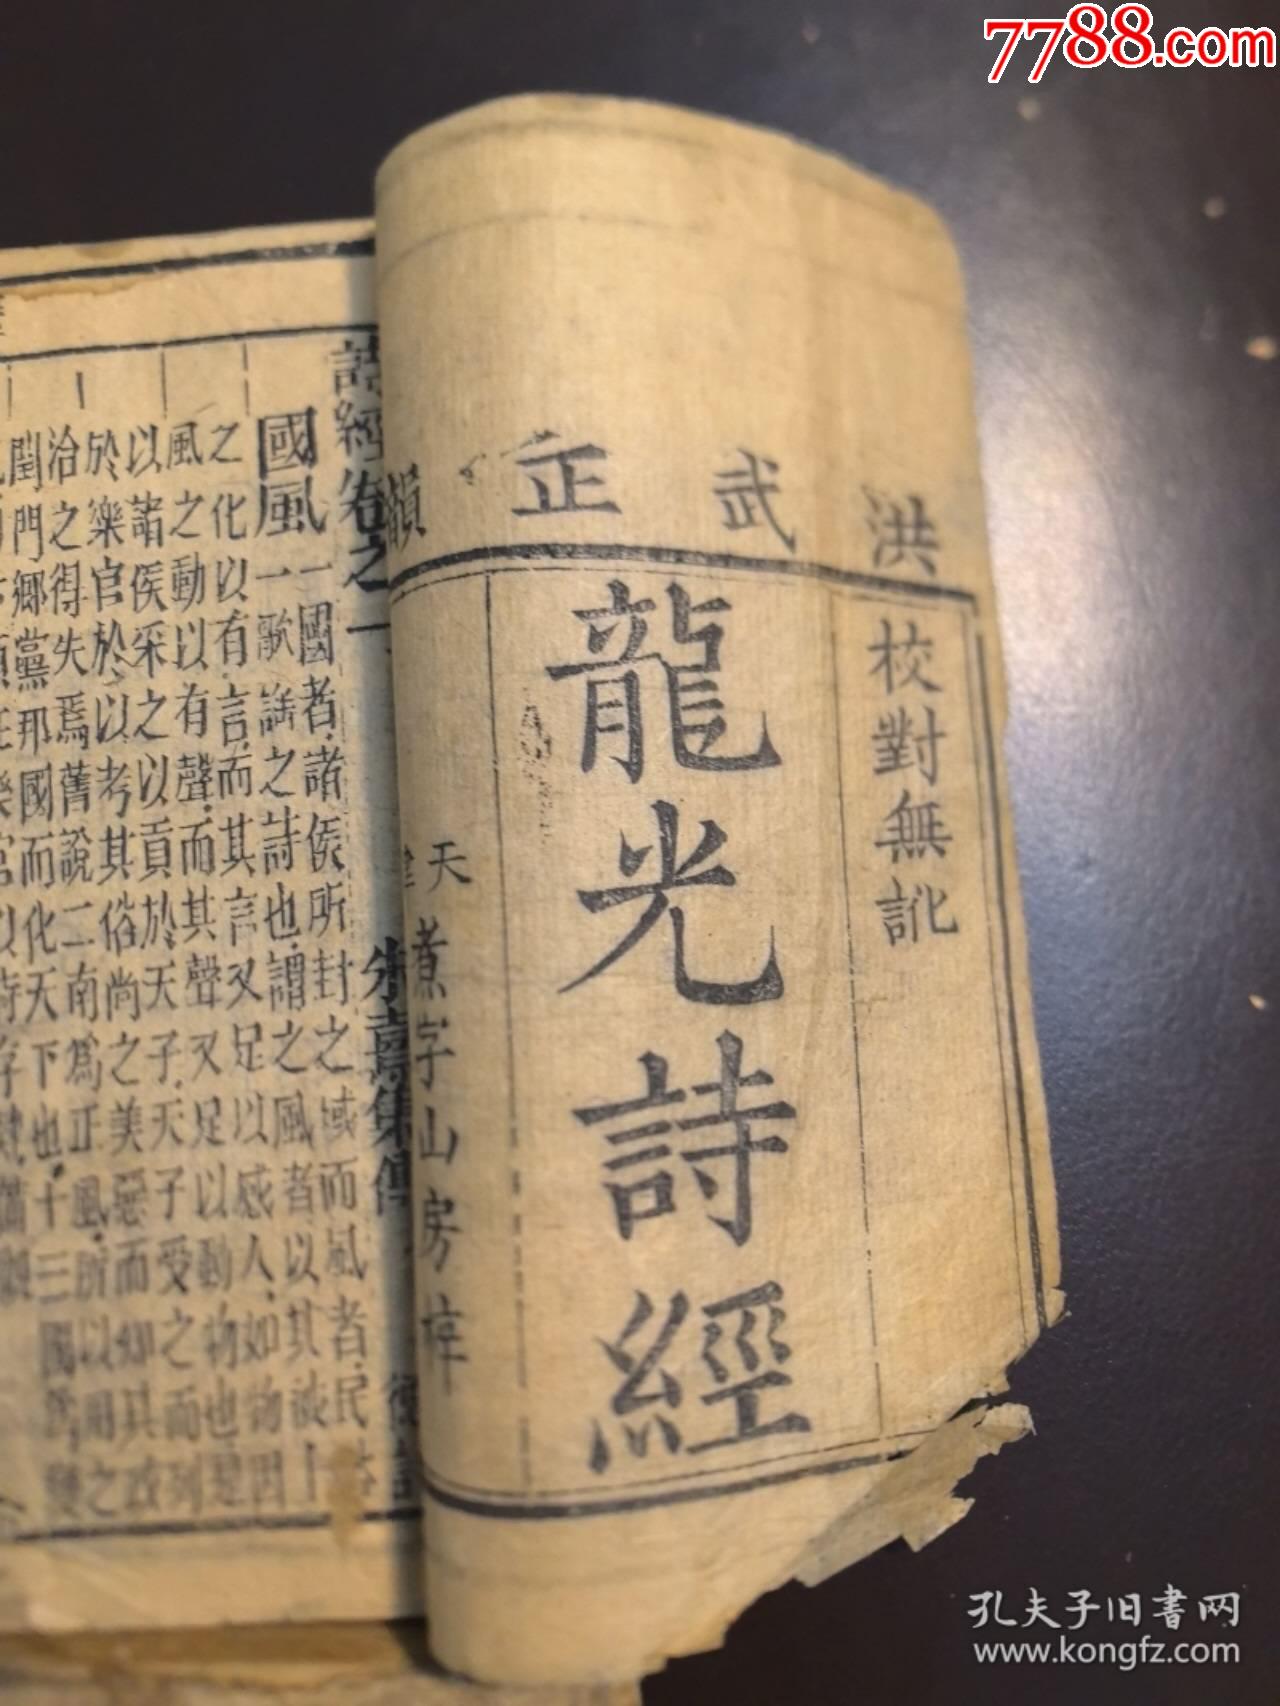 7788.com
洪武正韻
校對無訛
龍光詩經
天津
煮字山房梓
詩經卷之一
朱熹集傳
國風
一國者諸侯所封之域而風者民俗
歌謠之詩也謂之風者以其被上
之化以有言而其言又足以感人如物因
風之動以有聲而其聲又足以動物也是
以諸侯采之以貢於天子天子受之而列
於樂官於以考其俗尚之美惡而知其政
治之得失焉舊說二南爲正風所以用之
閨門鄉黨邦國而化天下也十三國爲變
孔夫子旧书网
www.kongfz.com